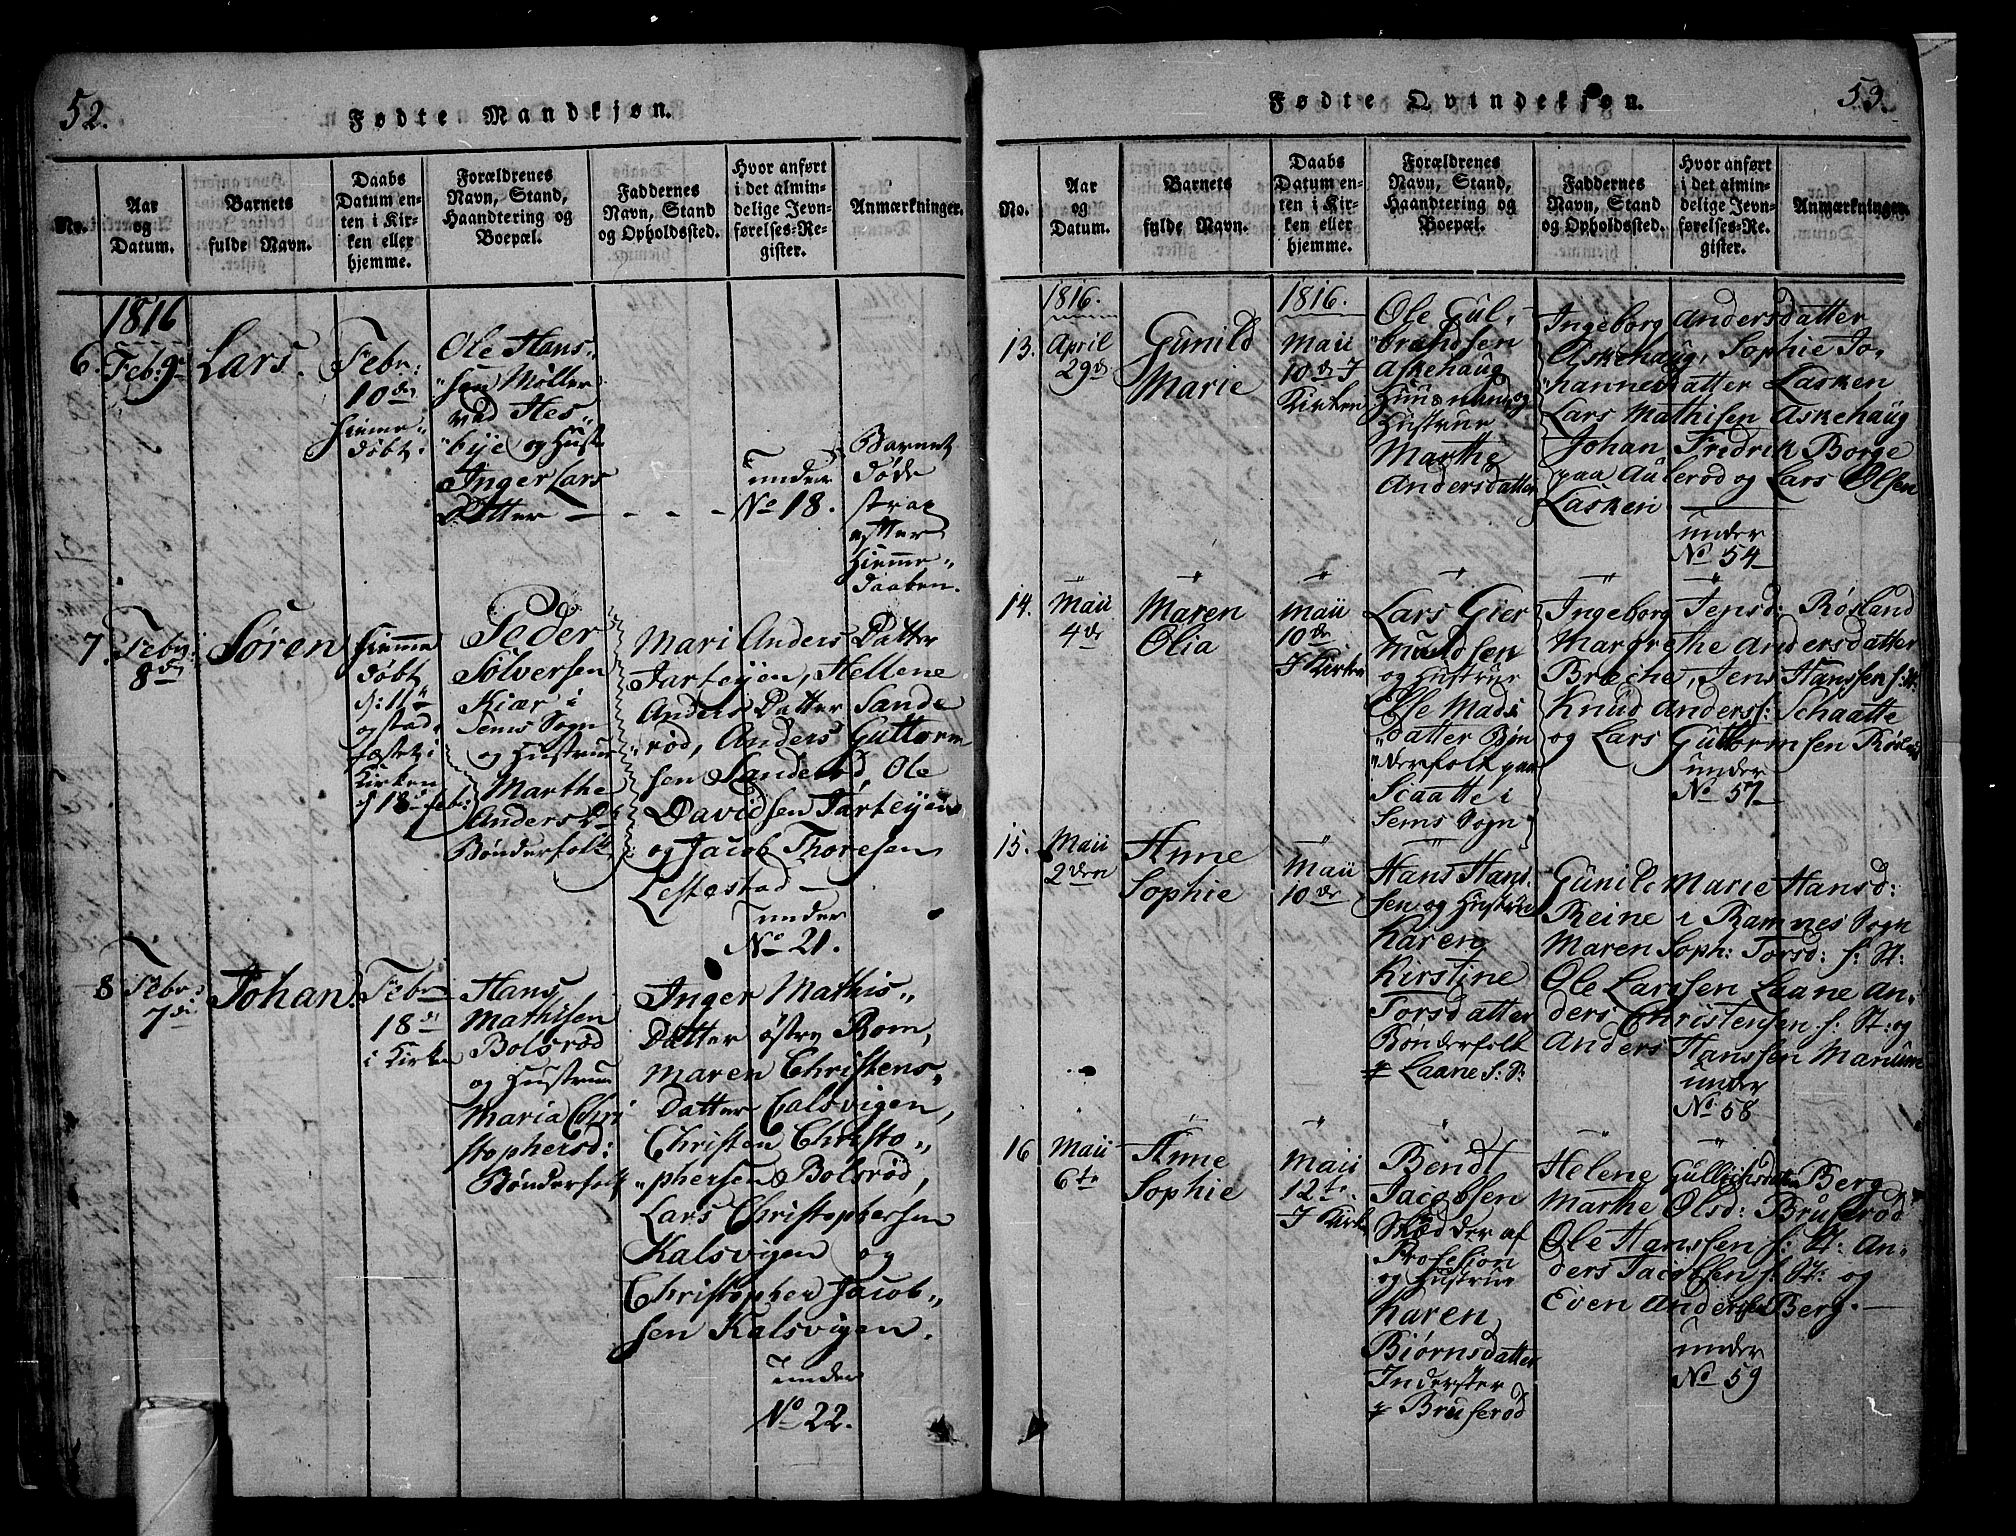 52.
Fødte Mandkjøn.
No.
Aar
og
Datum.
Barnets
fulde Navn.
Daabs
Datum en-
ten i Kir-
ken eller
hjemme.
Forældrenes
Navn, Stand,
Haandtering og
Boepæl.
Faddernes
Navn, Stand
og Opholdssted.
Hvor anført
i det almin-
delige Jevn-
førelses-Re-
gister.
Anmærkninger.
1816
6.
Feb: 9de
Lars.
Febr:
10de
hieme
døbt.
Ole Hans
sen Møller
ved Hes
bye og Hust:
Inger Lars
Datter —
under
No 18.
Barnet
døde
strax
efter
hieme
daaben.
7.
Febr:
8de
Søren
hieme
døbt
d: 11te
og stad
fæstet i
Kirken
d 18 Feb:
Peder
Sølversen
Kiær i
Sems Sogn
og Hustrue
Marthe
Anders Dt
Bønderfolk
Mari Anders Datter
Jarteyen, Hellene
Anders Datter Sande
rød, Anders Guttorm
sen Sanderød, Ole
Davidsen Jarteyen
og Jacob Thoresen
Lefsestad —
under
No 21.
8
Febr:
7de
Johan.
Febr
18de
i Kirken
Hans
Mathisen
Bolsrød
og Hustrue
Maria Chri
stophersd:
Bønderfolk
Inger Mathis
Datter østre Bom,
Maren Christens
Datter Calsvigen,
Christen Christo
phersen Bolsrød,
Lars Christophersen
Kalsvigen og
Christopher Jacob
sen Kalsvigen.
under
No 22.
53.
Fødte Qvindekjøn.
No.
Aar
og
Datum.
Barnets
fulde Navn.
Daabs
Datum en-
ten i Kir-
ken eller
hjemme.
Forældrenes
Navn, Stand,
Haandtering og
Boepæl.
Faddernes
Navn, Stand
og Opholdssted.
Hvor anført
i det almin-
delige Jevn-
førelses-Re-
gister.
Anmærkninger.
1816.
13.
April
29de
Gunild
Marie
1816.
Maii
10de I
Kirken
Ole Gul
brandsen
Askehaug
Huusmand og
Hustrue
Marthe
Andersdatter
Ingeborg Andersdatter
Askehaug, Sophie Jo
hannesdatter Lasken
Lars Mathisen Askehaug
Johan Fridrik Borge
paa Aulerød og Lars Olsen
Lasken
under
No 54
14.
Maii
4de
Maren
Olia
Maii
10de
I Kirken
Lars Gier
mundsen
og Hustrue
Else Mads
datter Bøn
derfolk paa
Scaatte i
Sems Sogn
Ingeborg Jensd: Røsland
Margrethe Andersdatter
Breche, Jens Hanssen s: St:
Knud Anders: Schaatte
og Lars Guttormsen
under
No 57
15.
Maii
2den
Anne
Sophie
Maii
10de
Hans Hans
sen og Hustrue
Karen
Kirstine
Torsdatter
Bønderfolk
p Laane s: S:
Gunild Marie Hansd:
Reine i Ramnes Sogn
Maren Soph: Torsd: s: St:
Ole Larssen Laane An
ders Christensen s: St: og
Anders Hanssen
under
No 58
16
Maii
6te
Anne
Sophie
Maii
12te
I Kirken
Bendt
Jacobsen
Skrædder af
Profesion
og Hustrue
Karen
Biørnsdatter
Inderster
p Bruserød
Helene Gullichsdatter Berg
Marthe Olsd: Bruserød
Ole Hanssen s: St: An
ders Jacobsen s: St: og
Even Andersen Berg. —
under
No 59